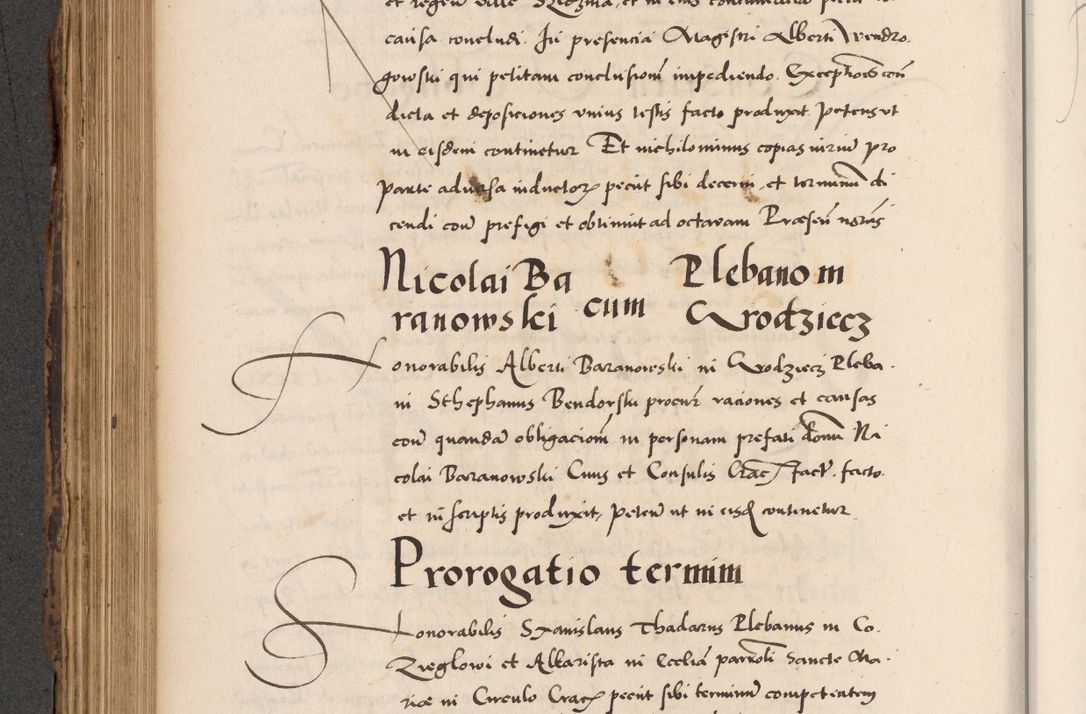 causa concludi. In presencia Magistri Alberti Wendro.
gowski qui petitam conclusionem impediendo. Exceptiones con
dicta et deposiciones unius testis facto produxit petens ut
in eisdem continetur Et nichilominus copias pro
parte adversa inductorum peciit sibi decerni et terminum di
cendi contra prefigi et obtinuit ad octavam
Nicolai Ba Plebano in
ranowski cum Grodziecz
Honorabilis Alberti Baranowski in Grodziecz Pleba.
ni Sthephanus Bendorski procur raciones et causas
contra quandam obligacionem in personam prefati domini Ni
colai Baranowski Civis et Consulis Crac fact. facto.
et in scriptis produxit, petens ut in eisd continetur
Prorogatio termini
Honorabilis Stanislaus Thadarus Plebanus in Co.
Zieglowi et Altarista in Ecclia parrochli Sancte Ma.
rie in Circulo Crac peciit sibi terminum competentem